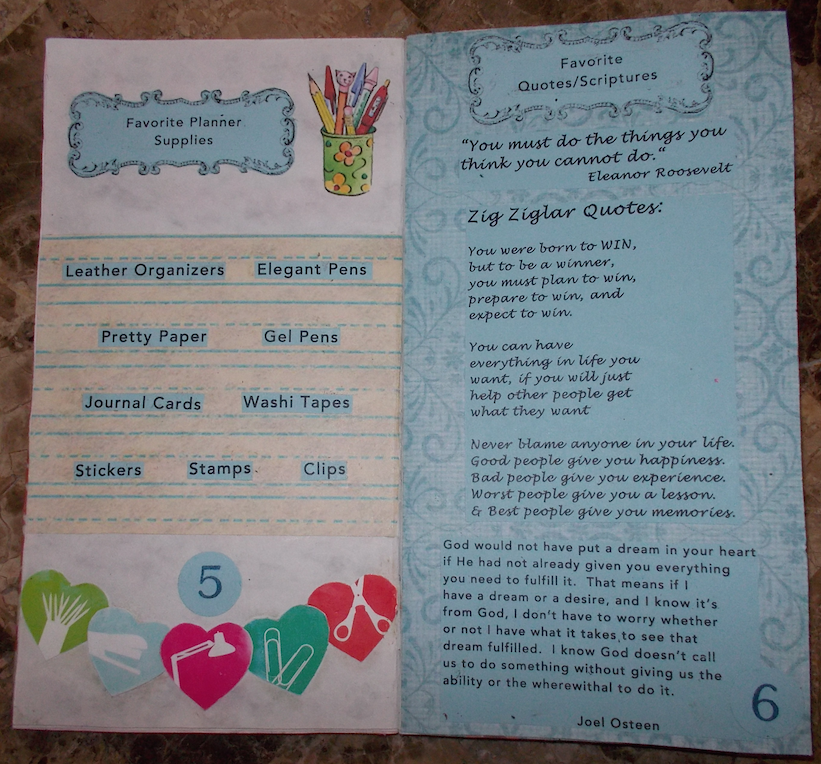 Favorite Planner
Supplies
Leather Organizers Elegant Pens
Pretty Paper Gel Pens
Journal Cards Washi Tapes
Stickers Stamps Clips
5
Favorite
Quotes/Scriptures
“You must do the things you
think you cannot do.“
Eleanor Roosevelt
Zig Ziglar Quotes:
You were born to WIN,
but to be a winner,
you must plan to win,
prepare to win, and
expect to win.
You can have
everything in life you
want, if you will just
help other people get
what they want
Never blame anyone in your life.
Good people give you happiness.
Bad people give you experience.
Worst people give you a lesson.
& Best people give you memories.
God would not have put a dream in your heart
if He had not already given you everything
you need to fulfill it. That means if I
have a dream or a desire, and I know it's
from God, I don't have to worry whether
or not I have what it takes to see that
dream fulfilled. I know God doesn't call
us to do something without giving us the
ability or the wherewithal to do it.
Joel Osteen
6